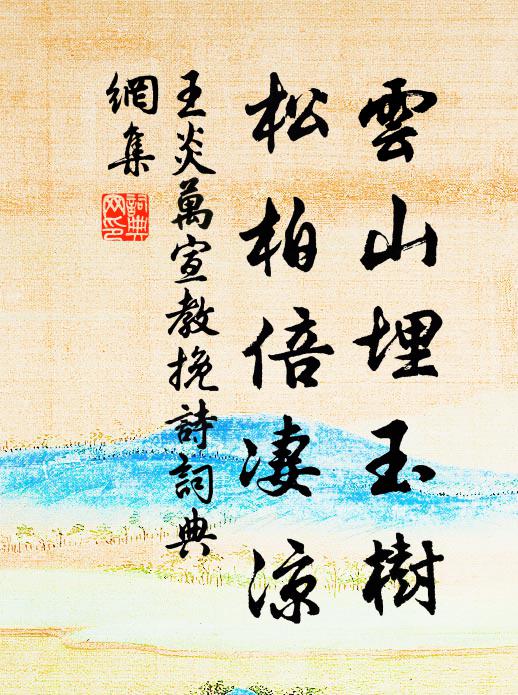 雲山埋玉樹
松柏倍凄涼
王炎萬宣教挽詩詞典
網集
詞典網印